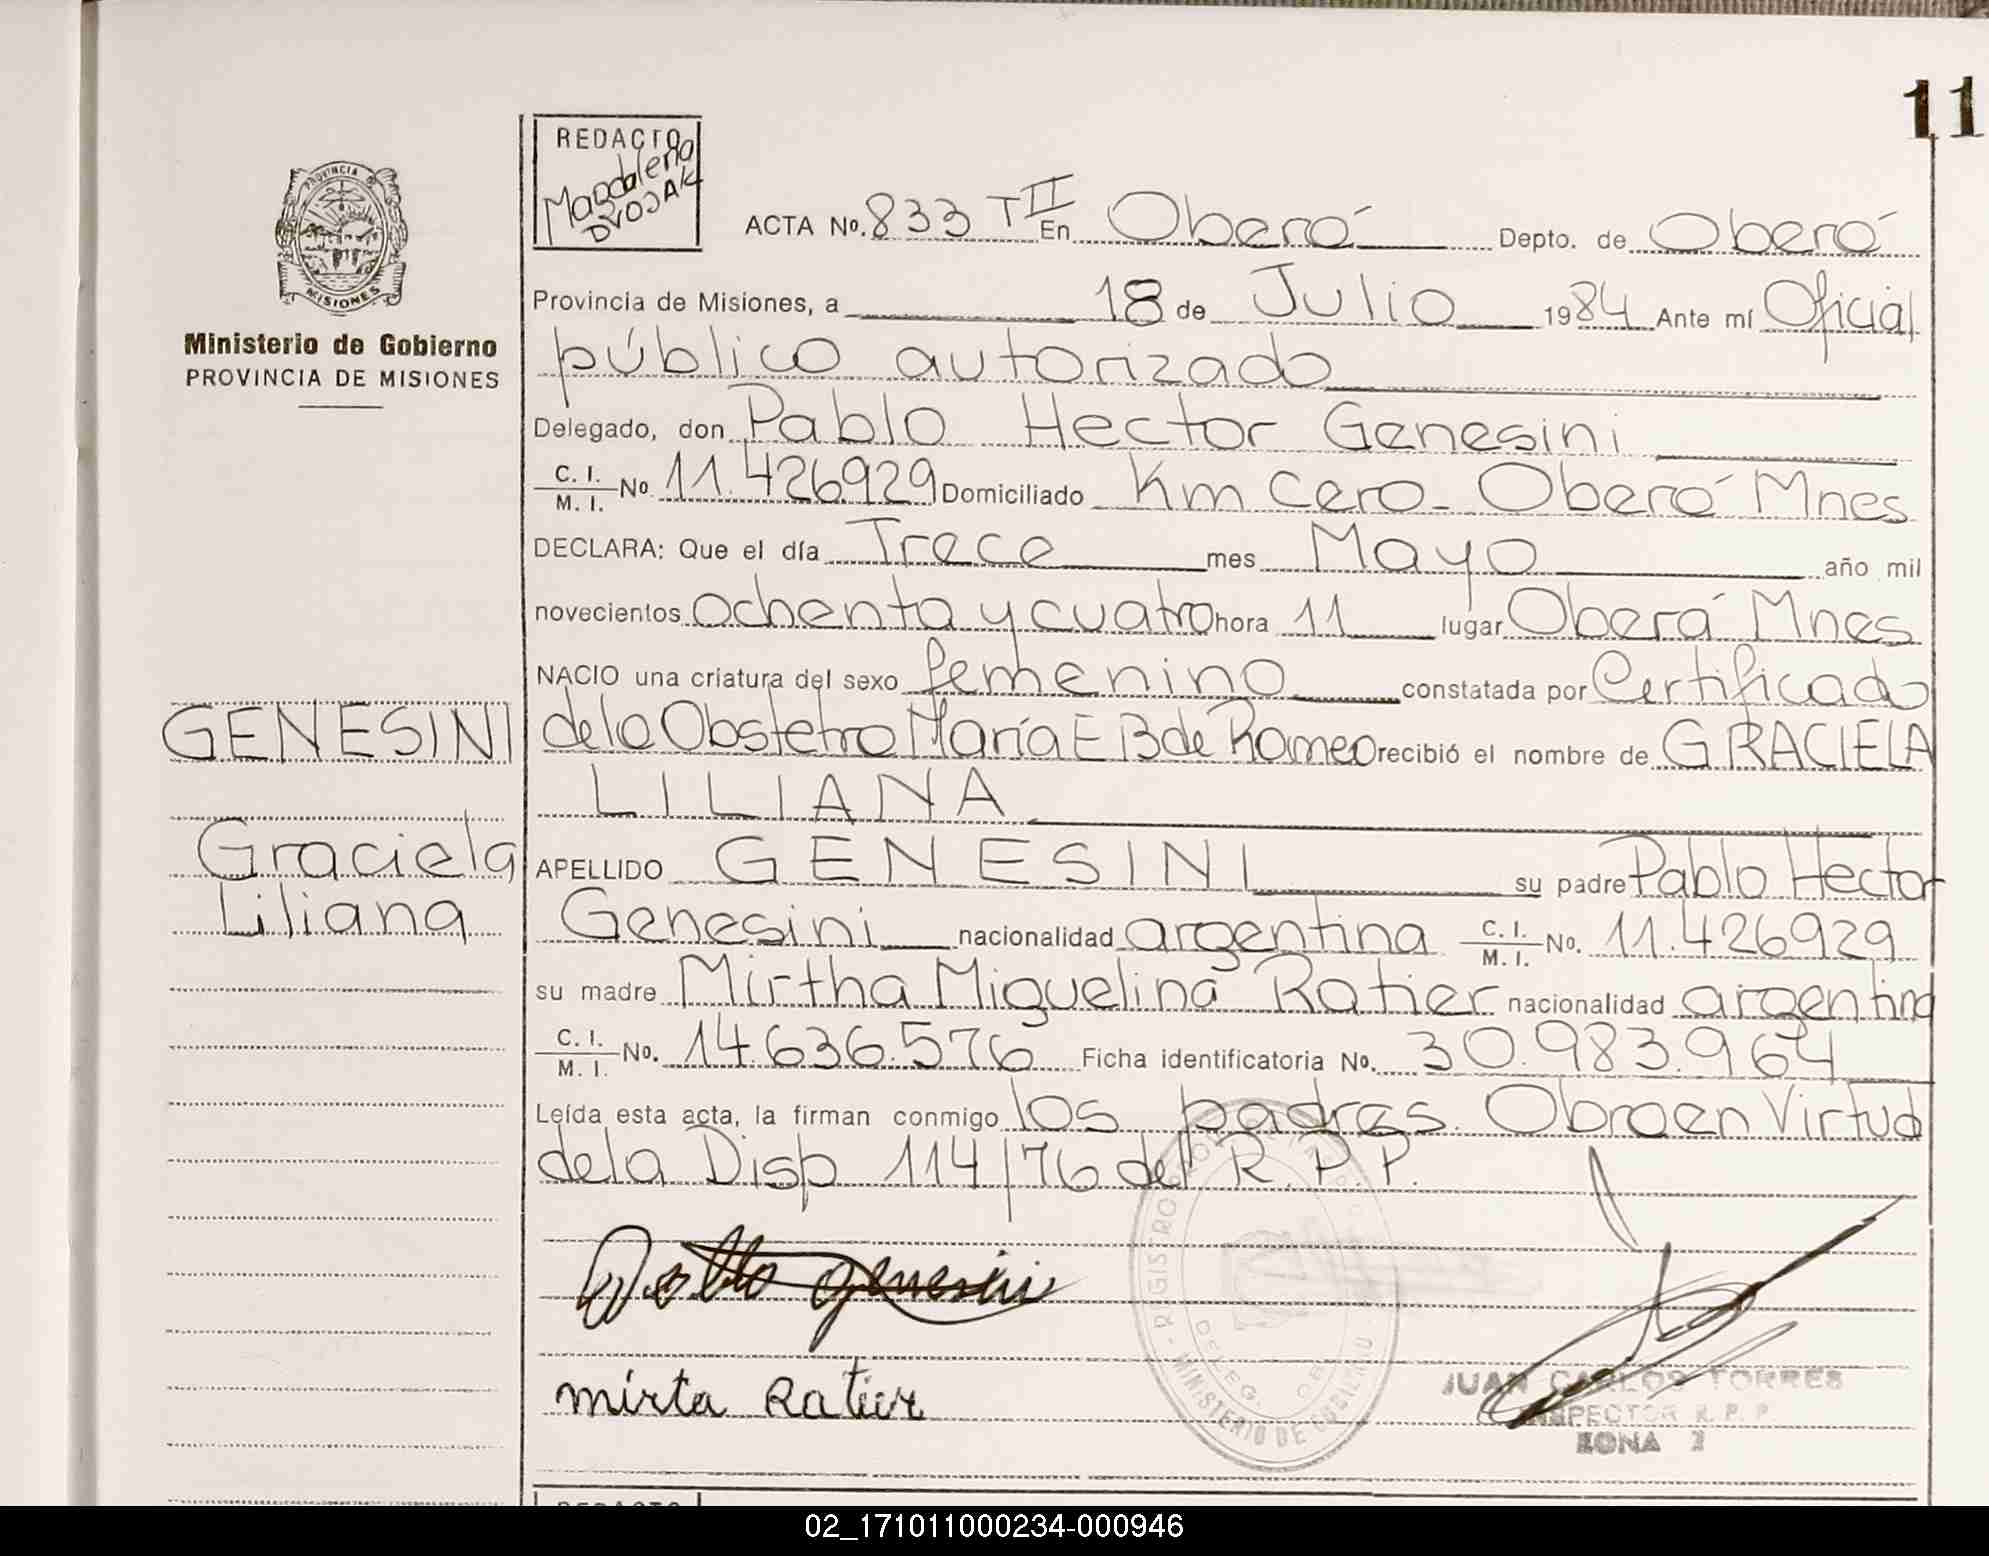 11
REDACTO
Magdalena
DVOJAK
ACTA No. 833 TII En Oberá Depto. de Oberá
PROVINCIA
MISIONES
Provincia de Misiones, a 18 de Julio 1984 Ante mí Oficial
Ministerio de Gobierno
PROVINCIA DE MISIONES
público autorizado
Delegado, don Pablo Hector Genesini
C. I.
M. I. No. 11.426929 Domiciliado Km Cero - Oberá Mnes
DECLARA: Que el día Trece mes Mayo año mil
novecientos ochenta y cuatro hora 11 lugar Oberá Mnes
NACIO una criatura del sexo femenino constatada por Certificado
GENESINI
de la Obstetra María E B de Romeo recibió el nombre de GRACIELA
LILIANA
Graciela
Liliana
APELLIDO GENESINI su padre Pablo Hector
Genesini nacionalidad argentina C. I. M. I. No. 11.426929
su madre Mirtha Miguelina Ratier nacionalidad argentina
C. I. M. I. No. 14.636.576 Ficha identificatoria No. 30.983.964
Leída esta acta, la firman conmigo los padres. Obro en Virtud
de la Disp 114/76 del R.P.P.
Genesini
mirta Ratier
MINISTERIO DE GOBIERNO
JUAN CARLOS TORRES
INSPECTOR R. P. P.
ZONA
REDACTO
02_171011000234-000946